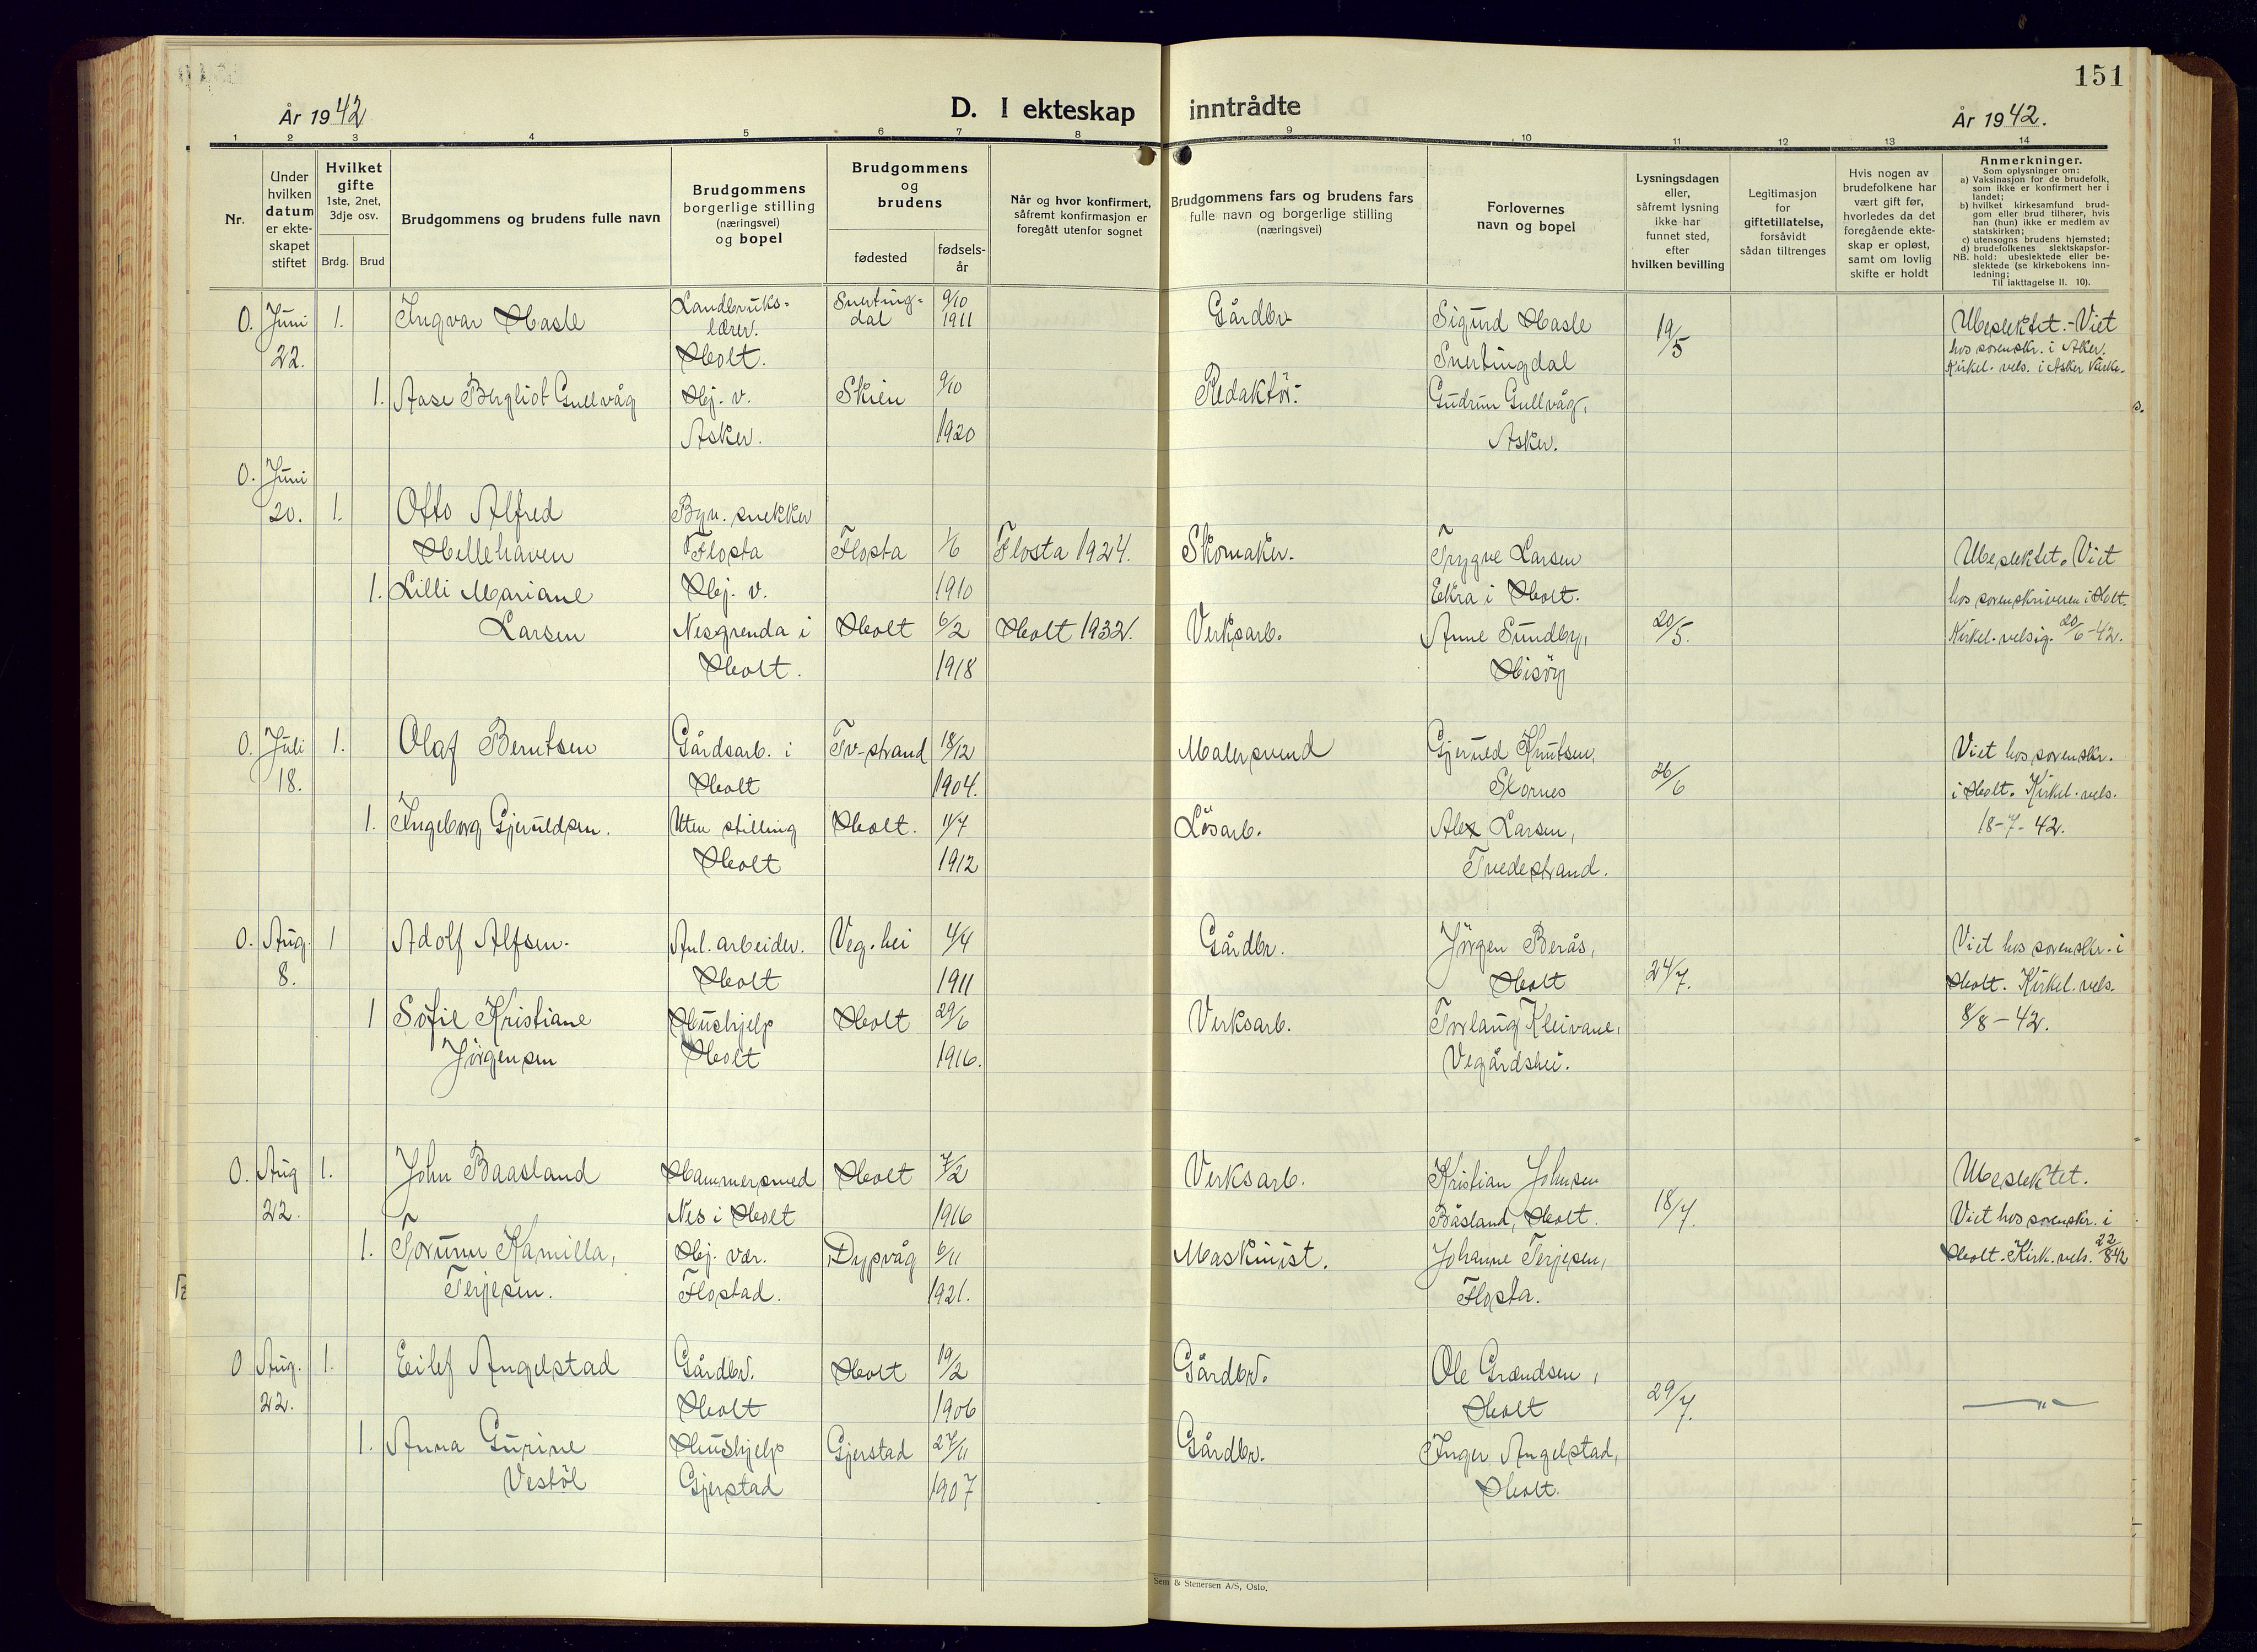 151
År 1942
D. I ekteskap inntrådte
År 1942.
1 2 3 4 5 6 7 8 9 10 11 12 13 14
Nr.
Under
hvilken
datum
er ekte-
skapet
stiftet
Hvilket
gifte
1ste, 2net,
3dje osv.
Brdg. Brud
Brudgommens og brudens fulle navn
Brudgommens
borgerlige stilling
(næringsvei)
og bopel
Brudgommens
og
brudens
fødested
fødsels-
år
Når og hvor konfirmert,
såfremt konfirmasjon er
foregått utenfor sognet
Brudgommens fars og brudens fars
fulle navn og borgerlige stilling
(næringsvei)
Forlovernes
navn og bopel
Lysningsdagen
eller,
såfremt lysning
ikke har
funnet sted,
efter
hvilken bevilling
Legitimasjon
for
giftetillatelse,
forsåvidt
sådan tiltrenges
Hvis nogen av
brudefolkene har
vært gift før,
hvorledes da det
foregående ekte-
skap er opløst,
samt om lovlig
skifte er holdt
Anmerkninger.
Som oplysninger om:
a) Vaksinasjon for de brudefolk,
som ikke er konfirmert her i
landet;
b) hvilket kirkesamfund brud-
gom eller brud tilhører, hvis
han (hun) ikke er medlem av
statskirken;
c) utensogns brudens hjemsted;
d) brudefolkenes slektskapsfor-
NB. hold: ubeslektede eller be-
slektede (se kirkebokens inn-
ledning;
Til iakttagelse II. 10).
0. Juni 1. Ingvar Hasle Landbruks- Snerting- 9/10 Gårdbr Sigurd Hasle 19/5 Ubeslektet. - Viet
22. lærer. dal 1911 Snertingdal hos sorenskr. i Aker.
Holt. Kirkel. vels. i Asker kirke.
1. Aase Bergliot Gullvåg Hj. v. Skien 9/10 Redaktör. Gudrun Gullvåg,
Asker. 1920 Asker.
0. Juni
20. 1. Otto Alfred Byn. snekker
Hellehaven Flosta Flosta 1/6 Flosta 1924. Skomaker. Trygve Larsen Ubeslektet. Viet
1. Lilli Mariane Hj. v. 1910 Ekra i Holt. hos sorenskriveren i Holt.
Larsen Nesgrenda i Holt 6/2 Holt 1932. Verksarb. Anne Sundby, 20/5. Kirkel. velsig. 20/6-42.
Holt. 1918 Hisöy
0. Juli 1. Olaf Berntsen Gårdsarb. i Tv-strand 18/12 Malersvend Gjeruld Knutsen, Viet hos sorenskr.
18. Holt 1904. Skornes 26/6 i Holt. Kirkel. vels.
1. Ingeborg Gjeruldsen. Uten stilling Holt. 11/7 Lösarb. Alex Larsen, 18-7-42.
Holt 1912 Tvedestrand.
0. Aug. 1 Adolf Alfsen. Anl. arbeider. Veg. hei 4/4 Gårdbr. Jörgen Berås, Viet hos sorenskr. i
8. Holt 1911 Holt 24/7. Holt. Kirkel. vels.
1 Sofie Kristiane Hushjelp Holt 29/6 Verksarb. Torlaug Kleivane, 8/8-42.
Jörgensen Holt 1916. Vegårdshei.
0. Aug 1. John Baasland Hammersmed Holt 7/2 Verksarb. Kristian Johnsen Ubeslektet.
22. Nes i Holt 1916 Båsland, Holt. 18/7. Viet hos sorenskr. i
1. Torunn Kamilla, Hj. vær. Dypvåg 6/11 Maskinist. Johanne Terjesen, Holt. Kirk. vels. 22/8 42
Terjesen. Flostad. 1921. Flosta.
0 Aug. 1. Eilef Angelstad Gårdbr. Holt 19/2 Gårdbr. Ole Grandsen,
22. Holt 1906 Holt 29/7. —"—
1. Anna Gurine Hushjelp Gjerstad 27/11 Gårdbr. Inger Angelstad,
Vestöl Gjerstad 1907 Holt.
Sem & Stenersen A/S, Oslo.